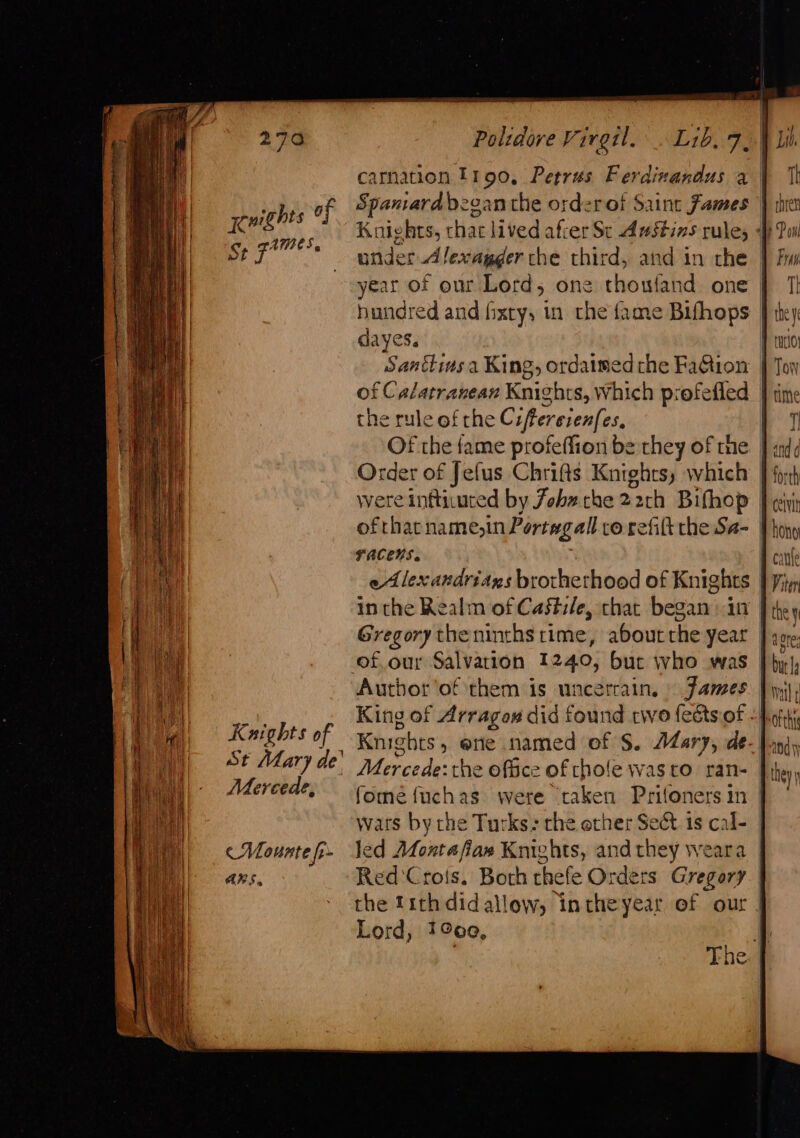 270 Polidore Virgil. Lib. 7.
carnation 1190. Petrus Ferdinandus a
Spaniard began the order of Saint James
Knights, that lived after St Austins rule,
under Alexander the third, and in the
year of our Lord, one thousand one
hundred and sixty, in the same Bishops
dayes.
Knights of
St James.
Sanctius a King, ordaimed the Faction
of Calatranean Knights, which professed
the rule of the Cistersienses.
Of the same profession be they of the
Order of Jesus Christs Knights, which
were instituted by John the 22th Bishop
of that name, in Portugall to resist the Sa-
racens.
Alexandrians brotherhood of Knights
in the Realm of Castile, that began in
Gregory the ninths time, about the year
of our Salvation 1240, but who was
Author of them is uncertain. James
King of Arragon did found two sects of
Knights, one named of S. Mary, de-
Mercede: the office of those was to ran-
some such as were taken Prisoners in
wars by the Turks: the other Sect is cal-
led Montasian Knights, and they wear a
Red Crois. Both these Orders Gregory
the 11th did allow, in the year of our
Lord, 1000,
Knights of
St Mary de
Mercede,
Mountesi-
ans.
The
Lib.
Th
they
time
and
forth
hono
cause
they